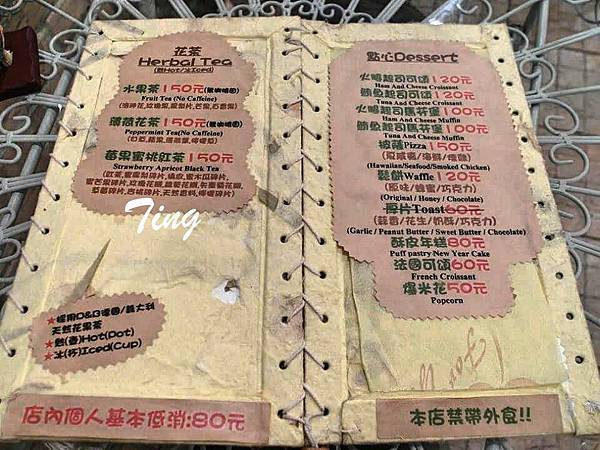 花茶
Herbal Tea
(熱Hot/冰Iced)
水果茶150元(無咖啡因)
Fruit Tea (No Caffeine)
薄荷花茶150元(無咖啡因)
Peppermint Tea(No Caffeine)
莓果蜜桃紅茶150元
Strawberry Apricot Black Tea
Ting
★採用D&B德國/義大利
天然花果茶
★熱(壺)Hot(Pot)
★冰(杯)Iced(Cup)
店內個人基本低消:80元
點心Dessert
火腿起司可頌120元
Ham And Cheese Croissant
鮪魚起司可頌120元
Tuna And Cheese Croissant
火腿起司馬芬堡100元
Ham And Cheese Muffin
鮪魚起司馬芬堡100元
Tuna And Cheese Muffin
披薩Pizza150元
(夏威夷/海鮮/燻雞)
(Hawaiian/Seafood/Smoked Chicken)
鬆餅Waffle120元
(原味/蜂蜜/巧克力)
(Original / Honey / Chocolate)
厚片Toast60元
(蒜香/花生/奶酥/巧克力)
(Garlic / Peanut Butter / Sweet Butter / Chocolate)
酥皮年糕80元
Puff pastry New Year Cake
法國可頌60元
French Croissant
爆米花50元
Popcorn
本店禁帶外食!!